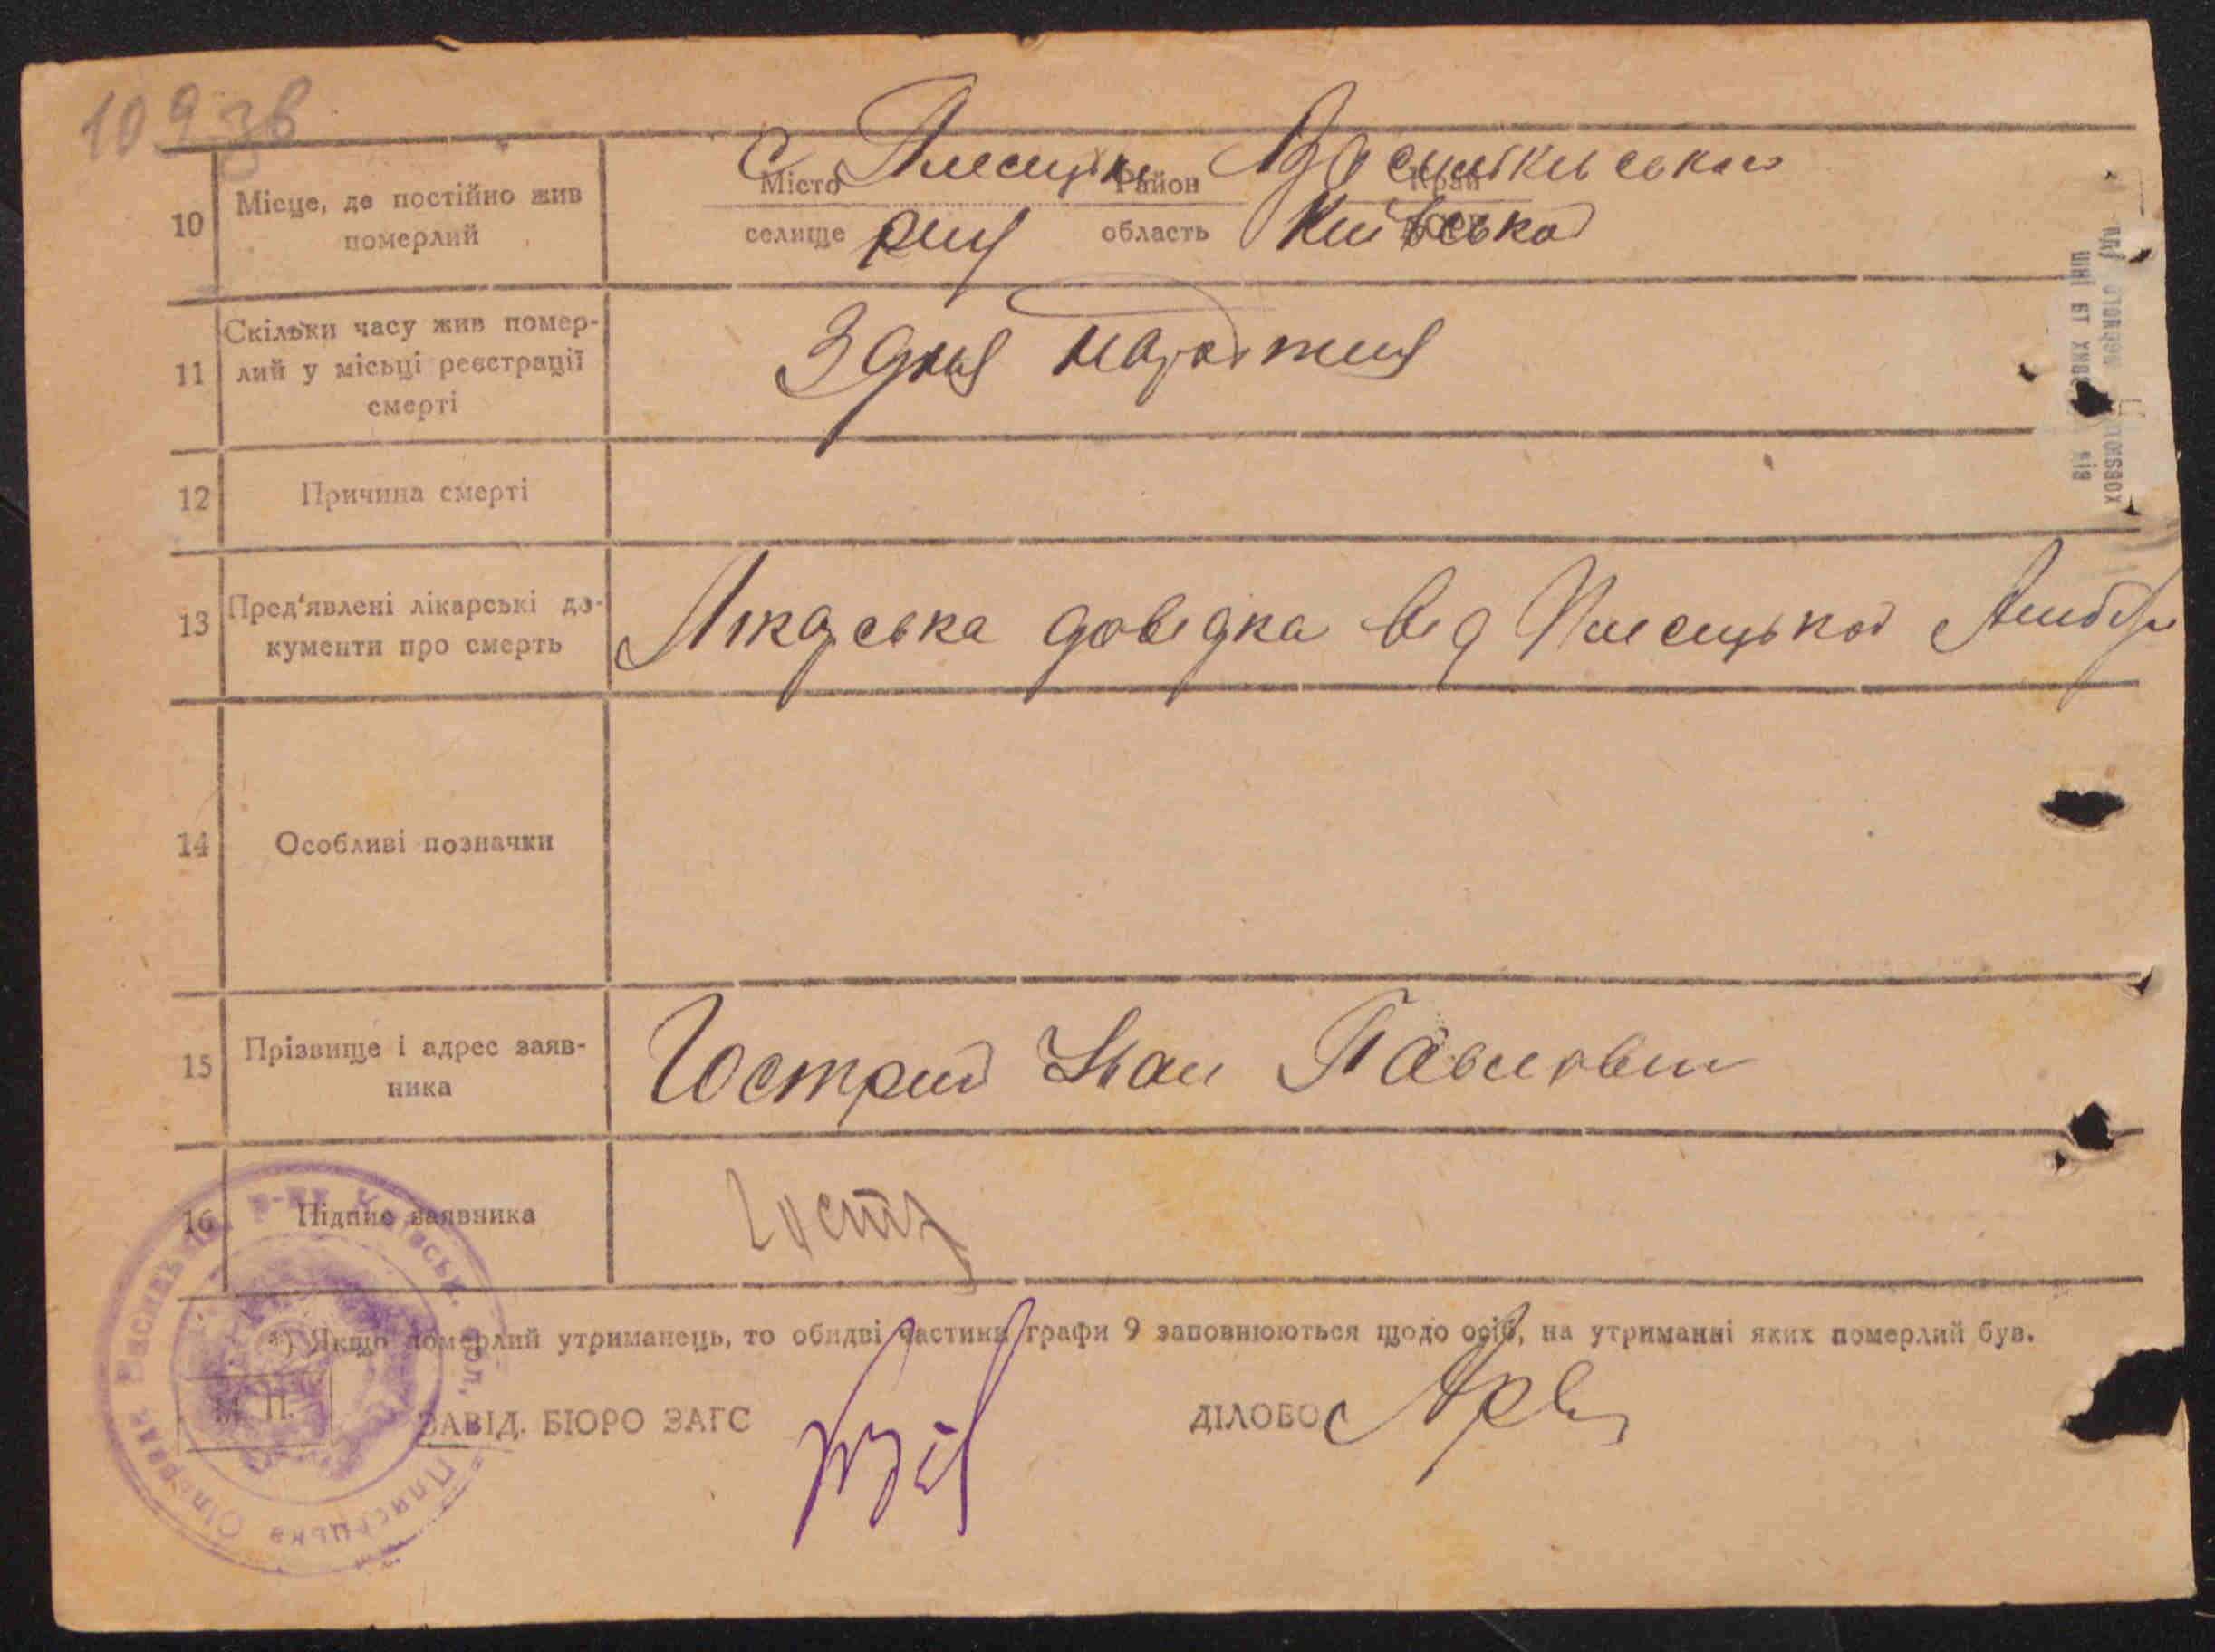 109 зв
С. Плесецьке Васильківського
Місто Район Край
10 Місце, де постійно жив
померлий
селище р-ну область Київської
11 Скільки часу жив помер-
лий у місьці реєстрації
смерті
З дня народження
12 Причина смерті
13 Пред'явлені лікарські до-
кументи про смерть
Лікарська довідка від Плесецької Амбул
14 Особливі позначки
15 Прізвище і адрес заяв-
ника
Гострий Іван Павлович
16 Підпис заявника
Гостр
*) Якщо померлий утриманець, то обидві частини графи 9 заповнюються щодо осіб, на утриманні яких померлий був.
М. П.
ЗАВІД. БЮРО ЗАГС
ДІЛОВОД
Плясецька Сільрада Васильків. р-ну Київськ. обл.